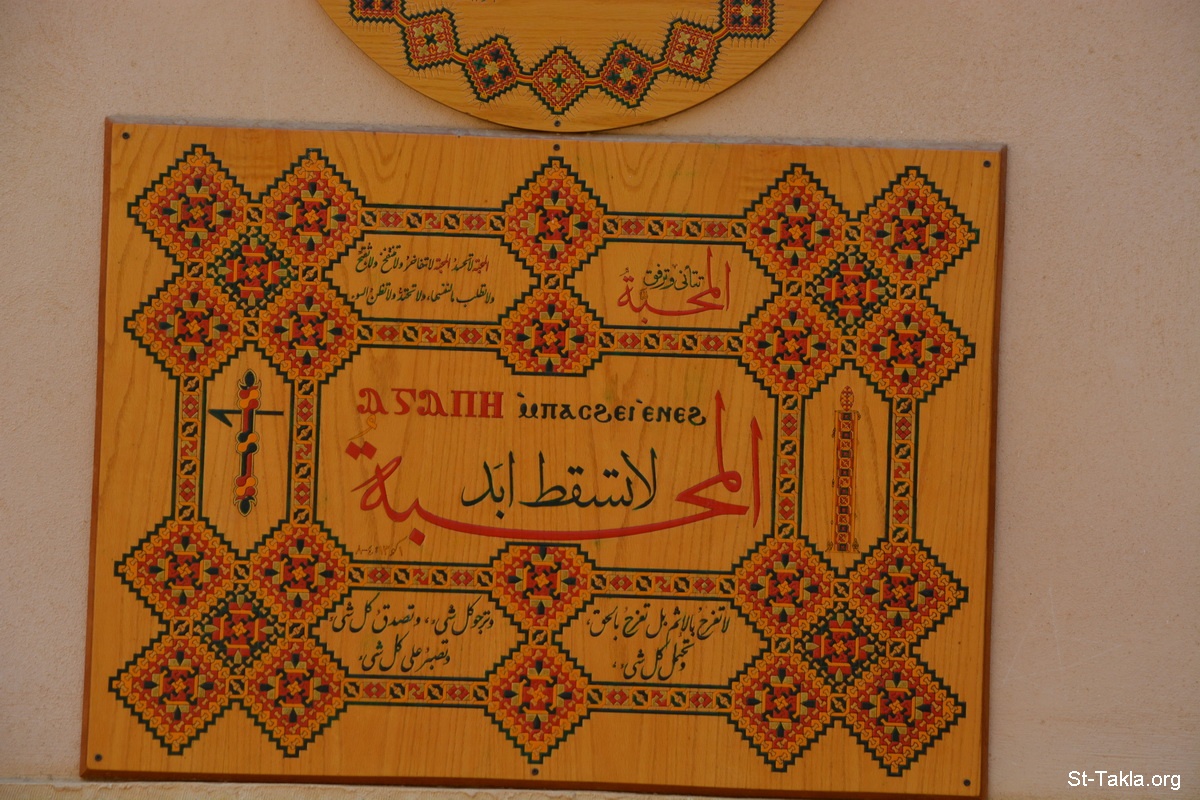 المحبة تتأنى وترفق
المحبة لا تحسد المحبة لا تتفاخر ولا تنتفخ ولا تقبح
ولا تطلب ما لنفسها، ولا تحتد ولا تظن السوء
ⲀⲄⲀⲠⲎ ⲙ̀ⲡⲁⲥϩⲉⲓ ⲉ̀ⲛⲉϩ
المحبةُ لا تسقط ابَد
لا تفرحُ بالاثم بل تفرحُ بالحق،
وتحمل كل شىء،
وترجو كل شىء، وتصدق كل شىء،
وتصبر على كل شىء،
St-Takla.org